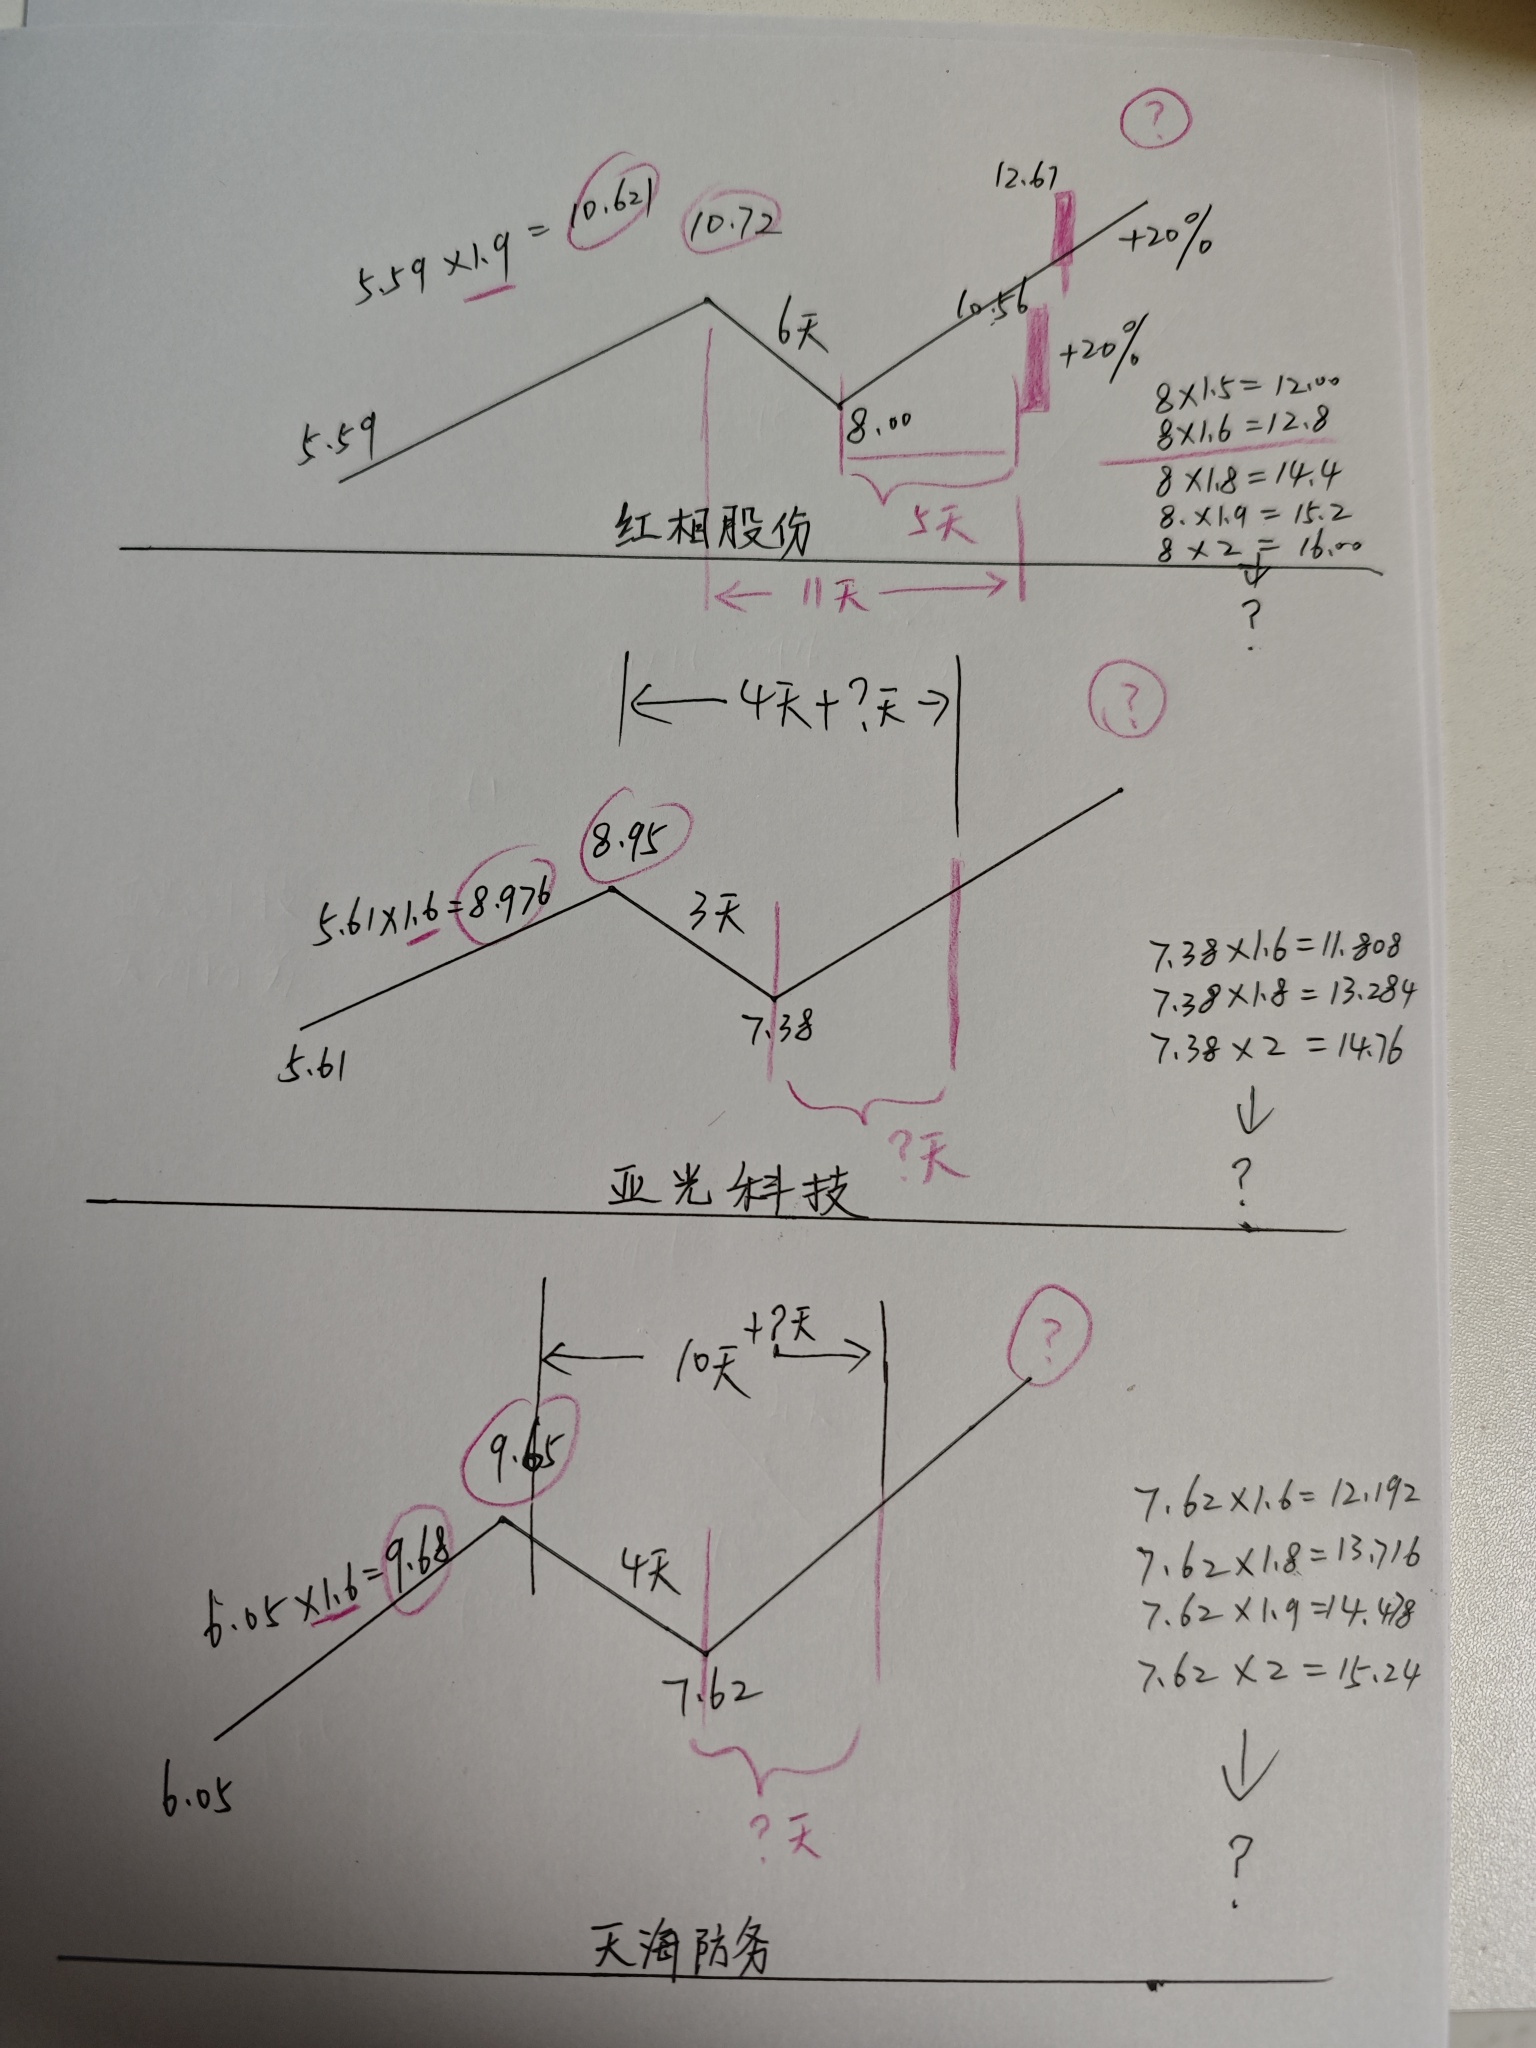 ?
12.67
5.59×1.9=10.621
10.72
+20%
6天
10.56
+20%
5.59
8.00
8×1.5=12.00
8×1.6=12.8
8×1.8=14.4
8.×1.9=15.2
8×2=16.00
↓
?
红相股份
5天
←11天→
←4天+?天→
?
8.95
5.61×1.6=8.976
3天
7.38
5.61
7.38×1.6=11.808
7.38×1.8=13.284
7.38×2=14.76
↓
?
?天
亚光科技
←10天+?天→
?
9.65
6.05×1.6=9.68
4天
7.62
6.05
7.62×1.6=12.192
7.62×1.8=13.716
7.62×1.9=14.478
7.62×2=15.24
↓
?
?天
天海防务